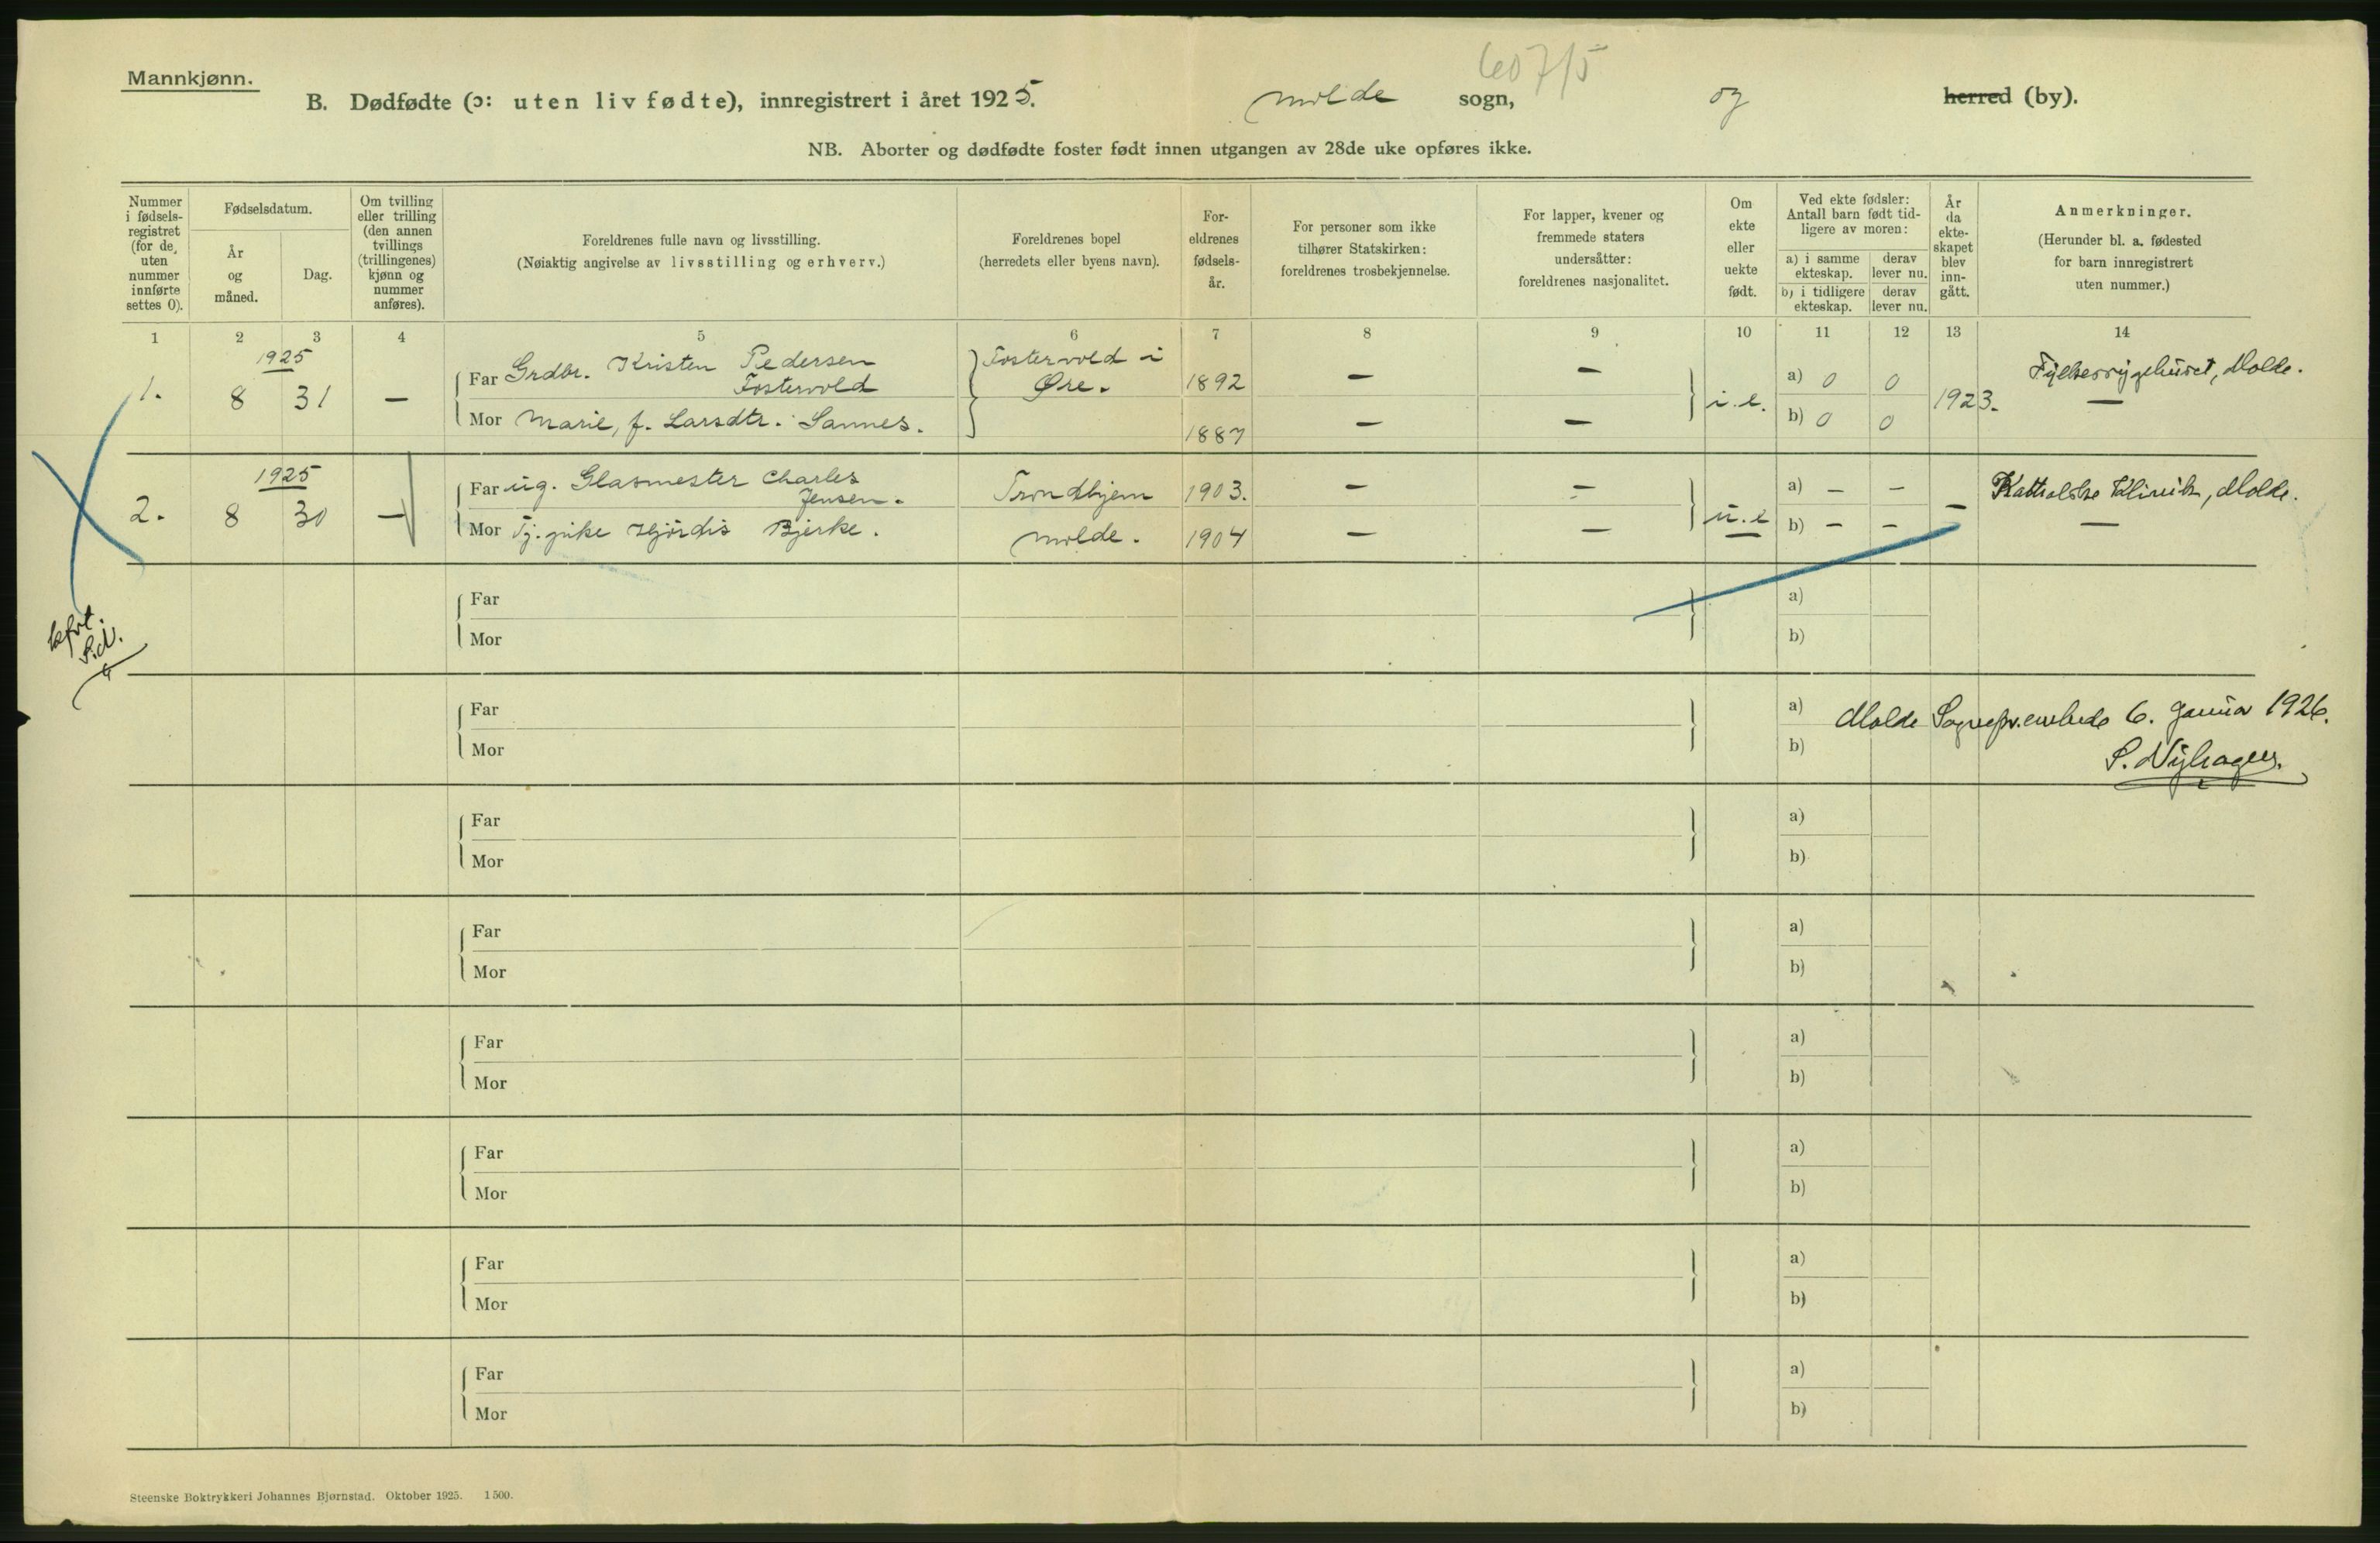 Mannkjønn.
607/5
B. Dødfødte (ɔ: uten liv fødte), innregistrert i året 1925. Molde sogn, og herred (by).
NB. Aborter og dødfødte foster født innen utgangen av 28de uke opføres ikke.
Nummer i fødsels-registret (for de uten nummer innførte settes 0).
Fødselsdatum.
År og måned.
Dag.
Om tvilling eller trilling (den annen tvillings (trillingenes) kjønn og nummer anføres).
Foreldrenes fulle navn og livsstilling.
(Nøiaktig angivelse av livsstilling og erhverv.)
Foreldrenes bopel
(herredets eller byens navn).
For-eldrenes fødsels-år.
For personer som ikke tilhører Statskirken: foreldrenes trosbekjennelse.
For lapper, kvener og fremmede staters undersåtter: foreldrenes nasjonalitet.
Om ekte eller uekte født.
Ved ekte fødsler: Antall barn født tid-ligere av moren:
a) i samme ekteskap. derav lever nu.
b) i tidligere ekteskap. derav lever nu.
År da ekte-skapet blev inn-gått.
Anmerkninger.
(Herunder bl. a. fødested for barn innregistrert uten nummer.)
1 2 3 4 5 6 7 8 9 10 11 12 13 14
1925
1. 8 31 —
Far Grdbr. Kristen Pedersen Fostervold
Fostervold i Øre.
1892 — — a) 0 0
Mor Marie, f. Larsdtr. Sannes.
1887 — — b) 0 0
i.e. 1923.
Fylkessygehuset, Molde.
—
1925
2. 8 30 —
Far ug. Glasmester Charles Jensen.
Trondhjem 1903. — — a) — —
Mor Tj.pike Hjördis Bjerke.
Molde. 1904 — — b) — —
u.e —
Katholske Klinik, Molde.
—
Far
Mor
a)
b)
kfrt.
S.N.
Far
Mor
a)
b)
Molde Sognepr.embede 6. Januar 1926.
S. Nyhagen.
Far
Mor
a)
b)
Far
Mor
a)
b)
Far
Mor
a)
b)
Far
Mor
a)
b)
Far
Mor
a)
b)
Far
Mor
a)
b)
Steenske Boktrykkeri Johannes Bjørnstad. Oktober 1925. 1500.